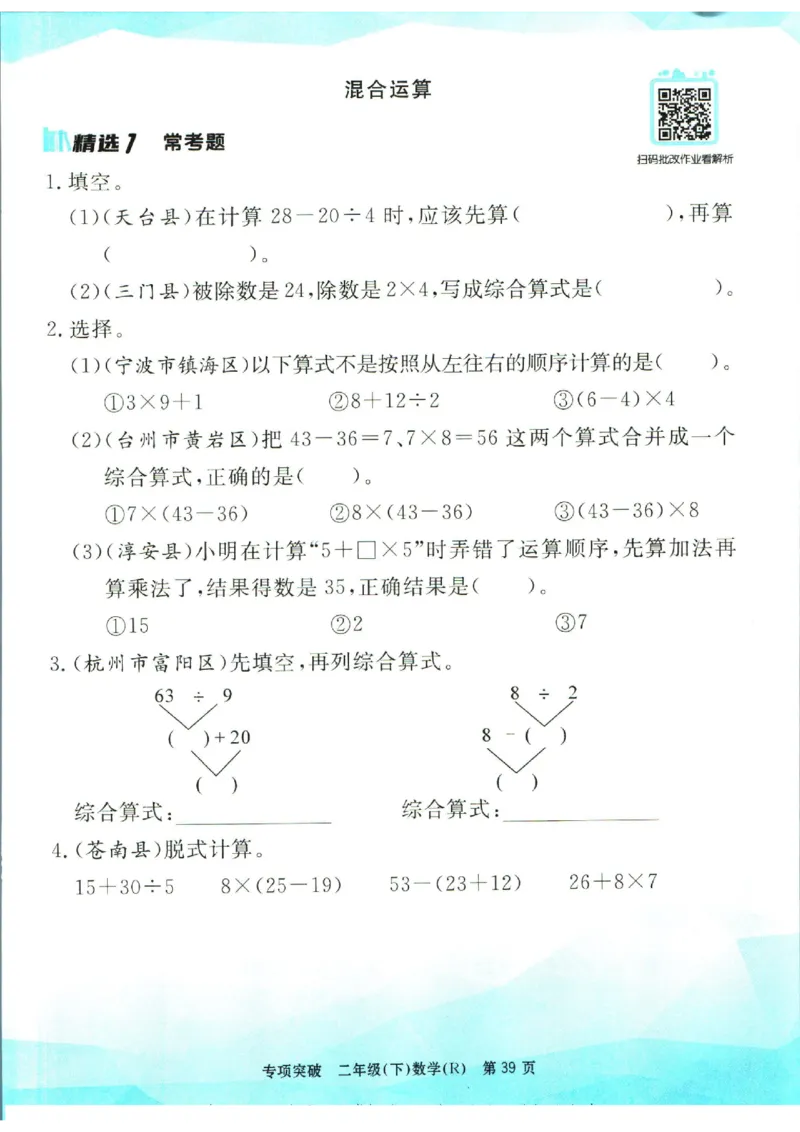 混合运算
精选1 常考题
扫码批改作业看解析
1.填空。
(1)(天台县)在计算 28－20÷4 时,应该先算(　　　),再算
(　　　)。
(2)(三门县)被除数是 24,除数是 2×4,写成综合算式是(　　　)。
2.选择。
(1)(宁波市镇海区)以下算式不是按照从左往右的顺序计算的是(　　)。
①3×9＋1　②8＋12÷2　③(6－4)×4
(2)(台州市黄岩区)把 43－36＝7、7×8＝56 这两个算式合并成一个
综合算式,正确的是(　　)。
①7×(43－36)　②8×(43－36)　③(43－36)×8
(3)(淳安县)小明在计算“5＋□×5”时弄错了运算顺序,先算加法再
算乘法了,结果得数是 35,正确结果是(　　)。
①15　②2　③7
3.(杭州市富阳区)先填空,再列综合算式。
63 ÷ 9　8 ÷ 2
(　)+20　8 -(　)
(　)　(　)
综合算式:________　综合算式:________
4.(苍南县)脱式计算。
15＋30÷5　8×(25－19)　53－(23＋12)　26＋8×7
专项突破 二年级(下)数学(R) 第 39 页